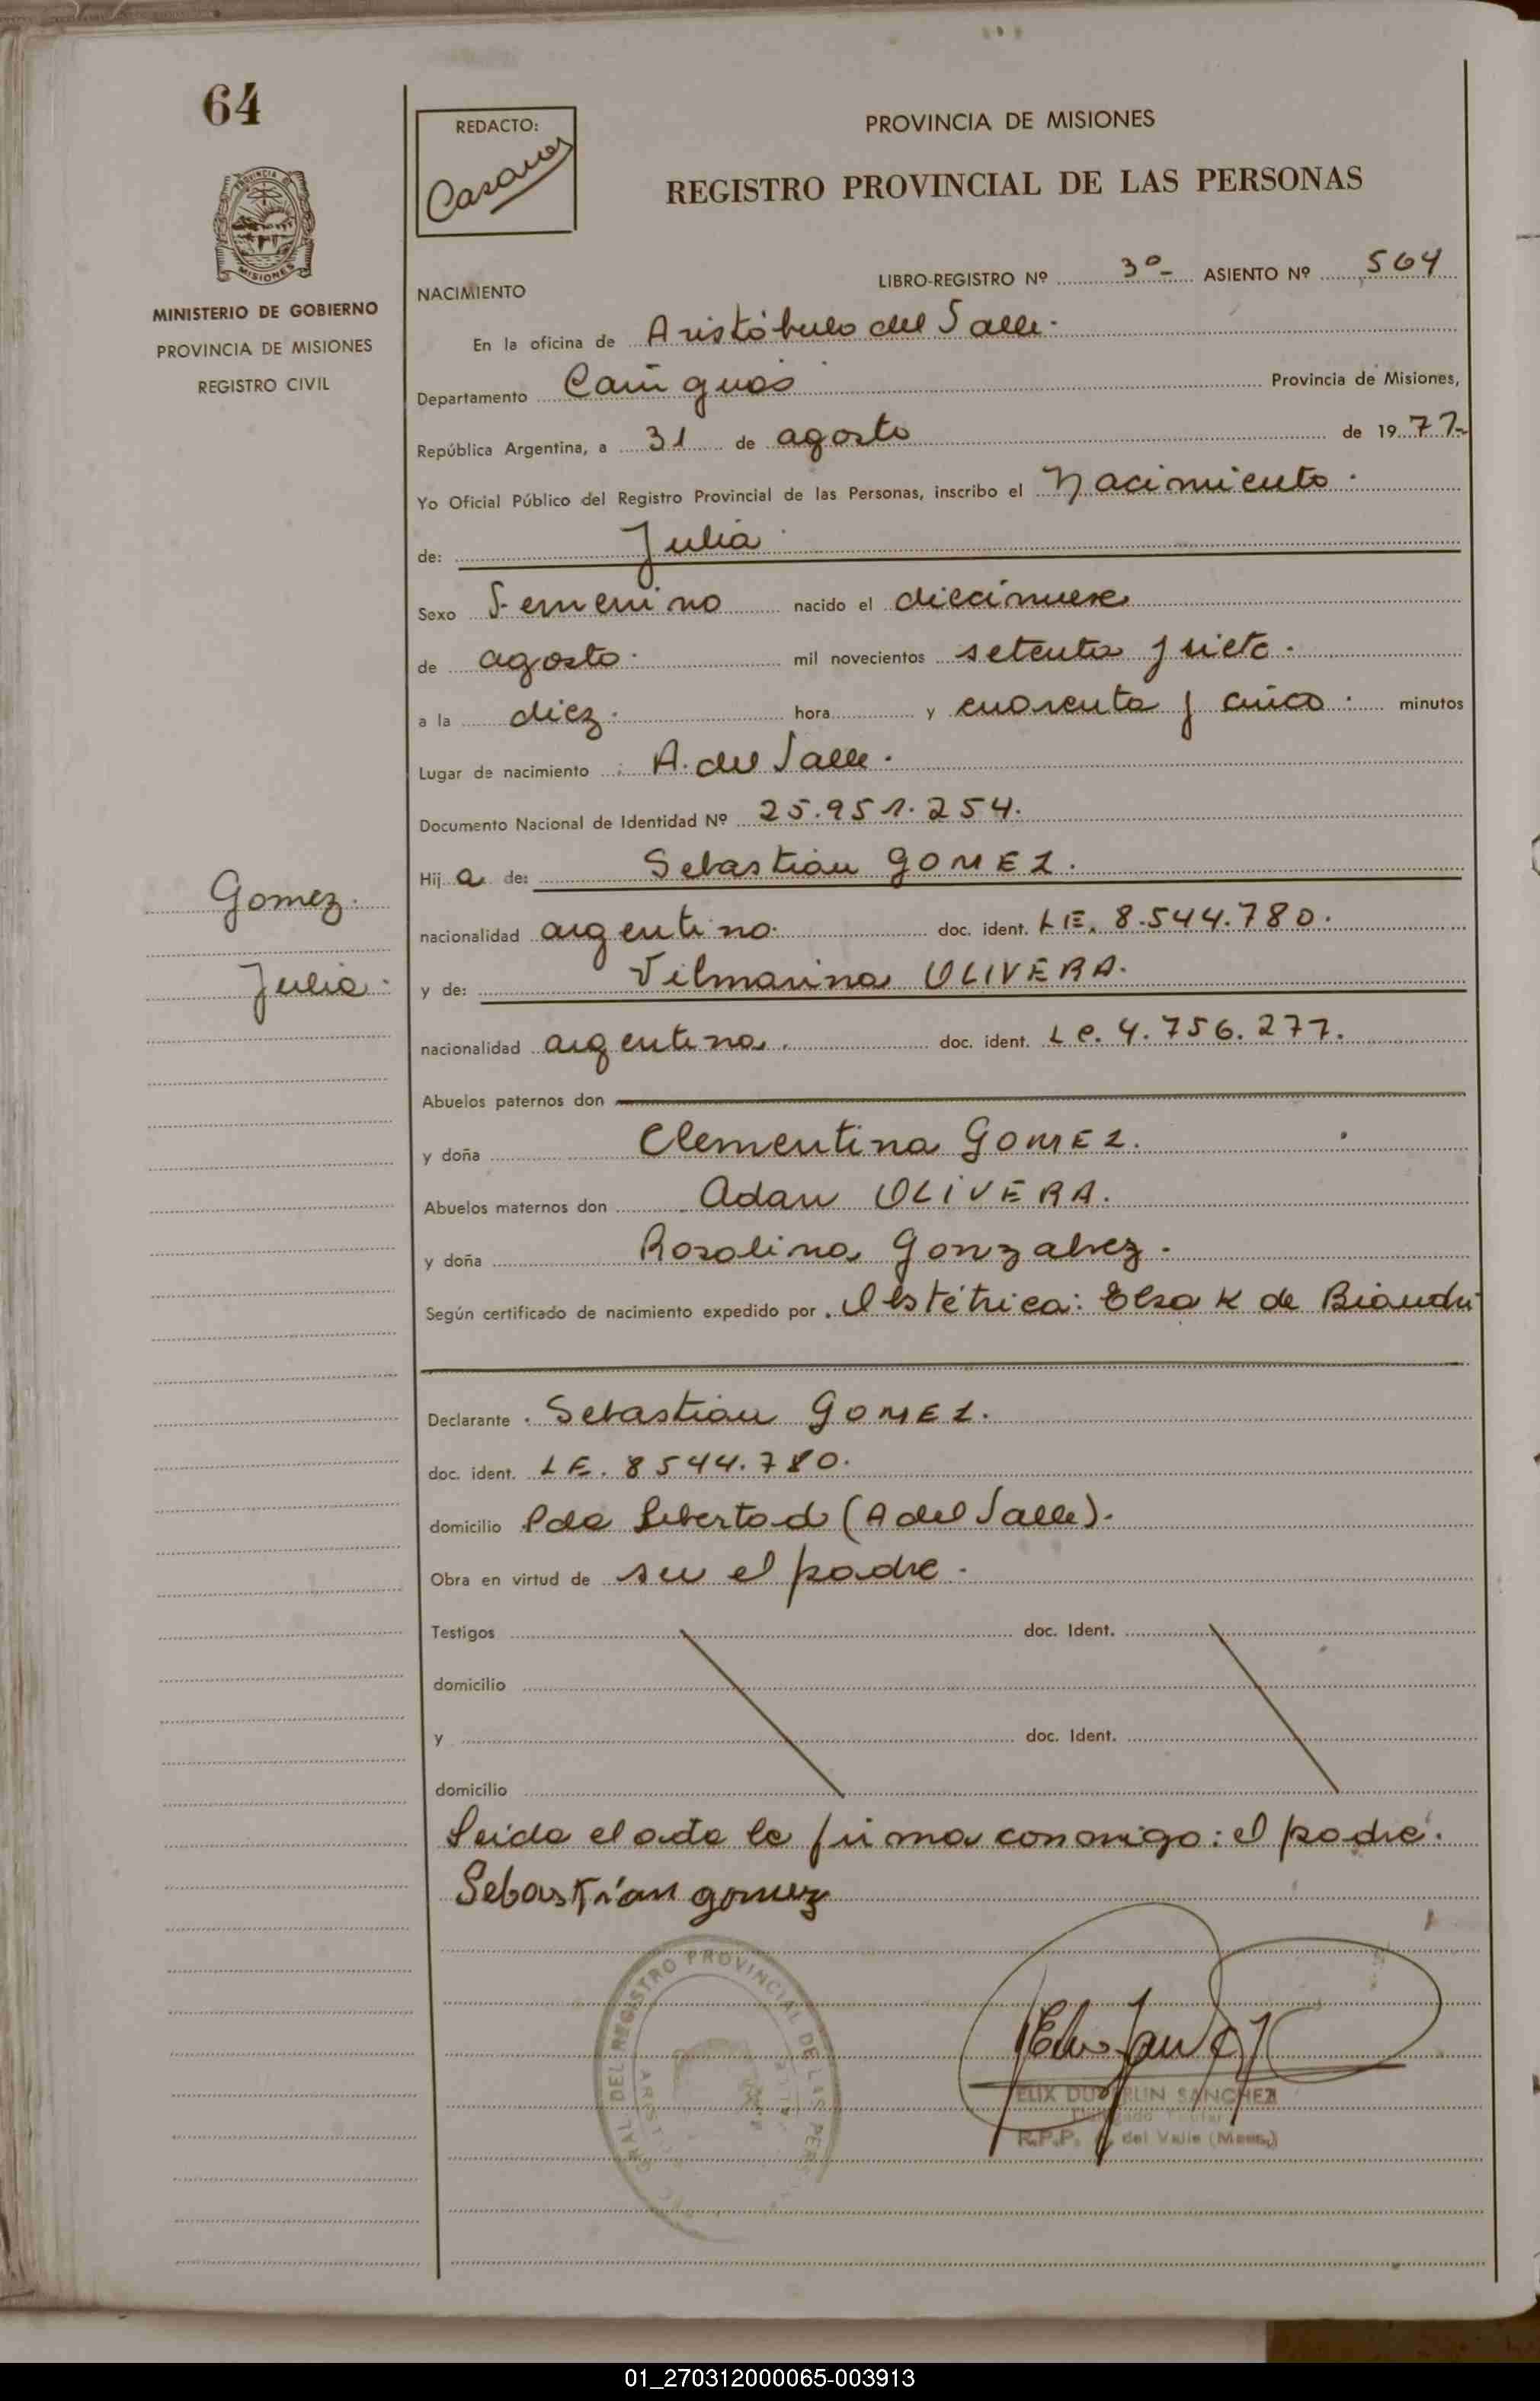 64
REDACTO:
Casares
PROVINCIA DE MISIONES
REGISTRO PROVINCIAL DE LAS PERSONAS
PROVINCIA DE
MISIONES
MINISTERIO DE GOBIERNO
PROVINCIA DE MISIONES
REGISTRO CIVIL
LIBRO-REGISTRO Nº 3º- ASIENTO Nº 564
NACIMIENTO
En la oficina de Aristóbulo del Valle.
Departamento Cainguás Provincia de Misiones,
República Argentina, a 31 de agosto de 1977-
Yo Oficial Público del Registro Provincial de las Personas, inscribo el Nacimiento.
de: Julia
Sexo Femenino nacido el diecinueve
de agosto. mil novecientos setenta y siete.
a la diez. hora y cuarenta y cinco. minutos
Lugar de nacimiento : A. del Valle.
Documento Nacional de Identidad Nº 25.951.254.
Hij a de: Sebastian GOMEZ.
nacionalidad argentino. doc. ident. LE. 8.544.780.
y de: Vilmarina OLIVERA.
nacionalidad argentina. doc. ident. LC. 4.756.277.
Gomez.
Julia.
Abuelos paternos don
y doña Clementina GOMEZ.
Abuelos maternos don Adan OLIVERA.
y doña Rosolina Gonzalvez.
Según certificado de nacimiento expedido por Obstétrica: Elsa K de Biandri
Declarante Sebastian GOMEZ.
doc. ident. LE. 8544.780.
domicilio Pda Libertad (A del Valle).
Obra en virtud de ser el padre.
Testigos doc. Ident.
domicilio
y doc. Ident.
domicilio
Leida el acta la firma conmigo: el padre.
Sebastian gomez
RAL DEL REGISTRO PROVINCIAL DE LAS PERS
ELIX DU RLIN SANCHEZ
R.P.P. del Valle (Mnes.)
01_270312000065-003913